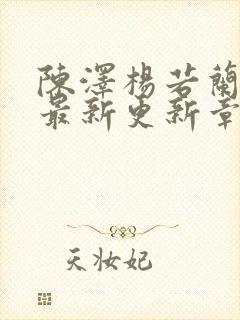 陳澤楊若蘭
最新更新章
天妆妃